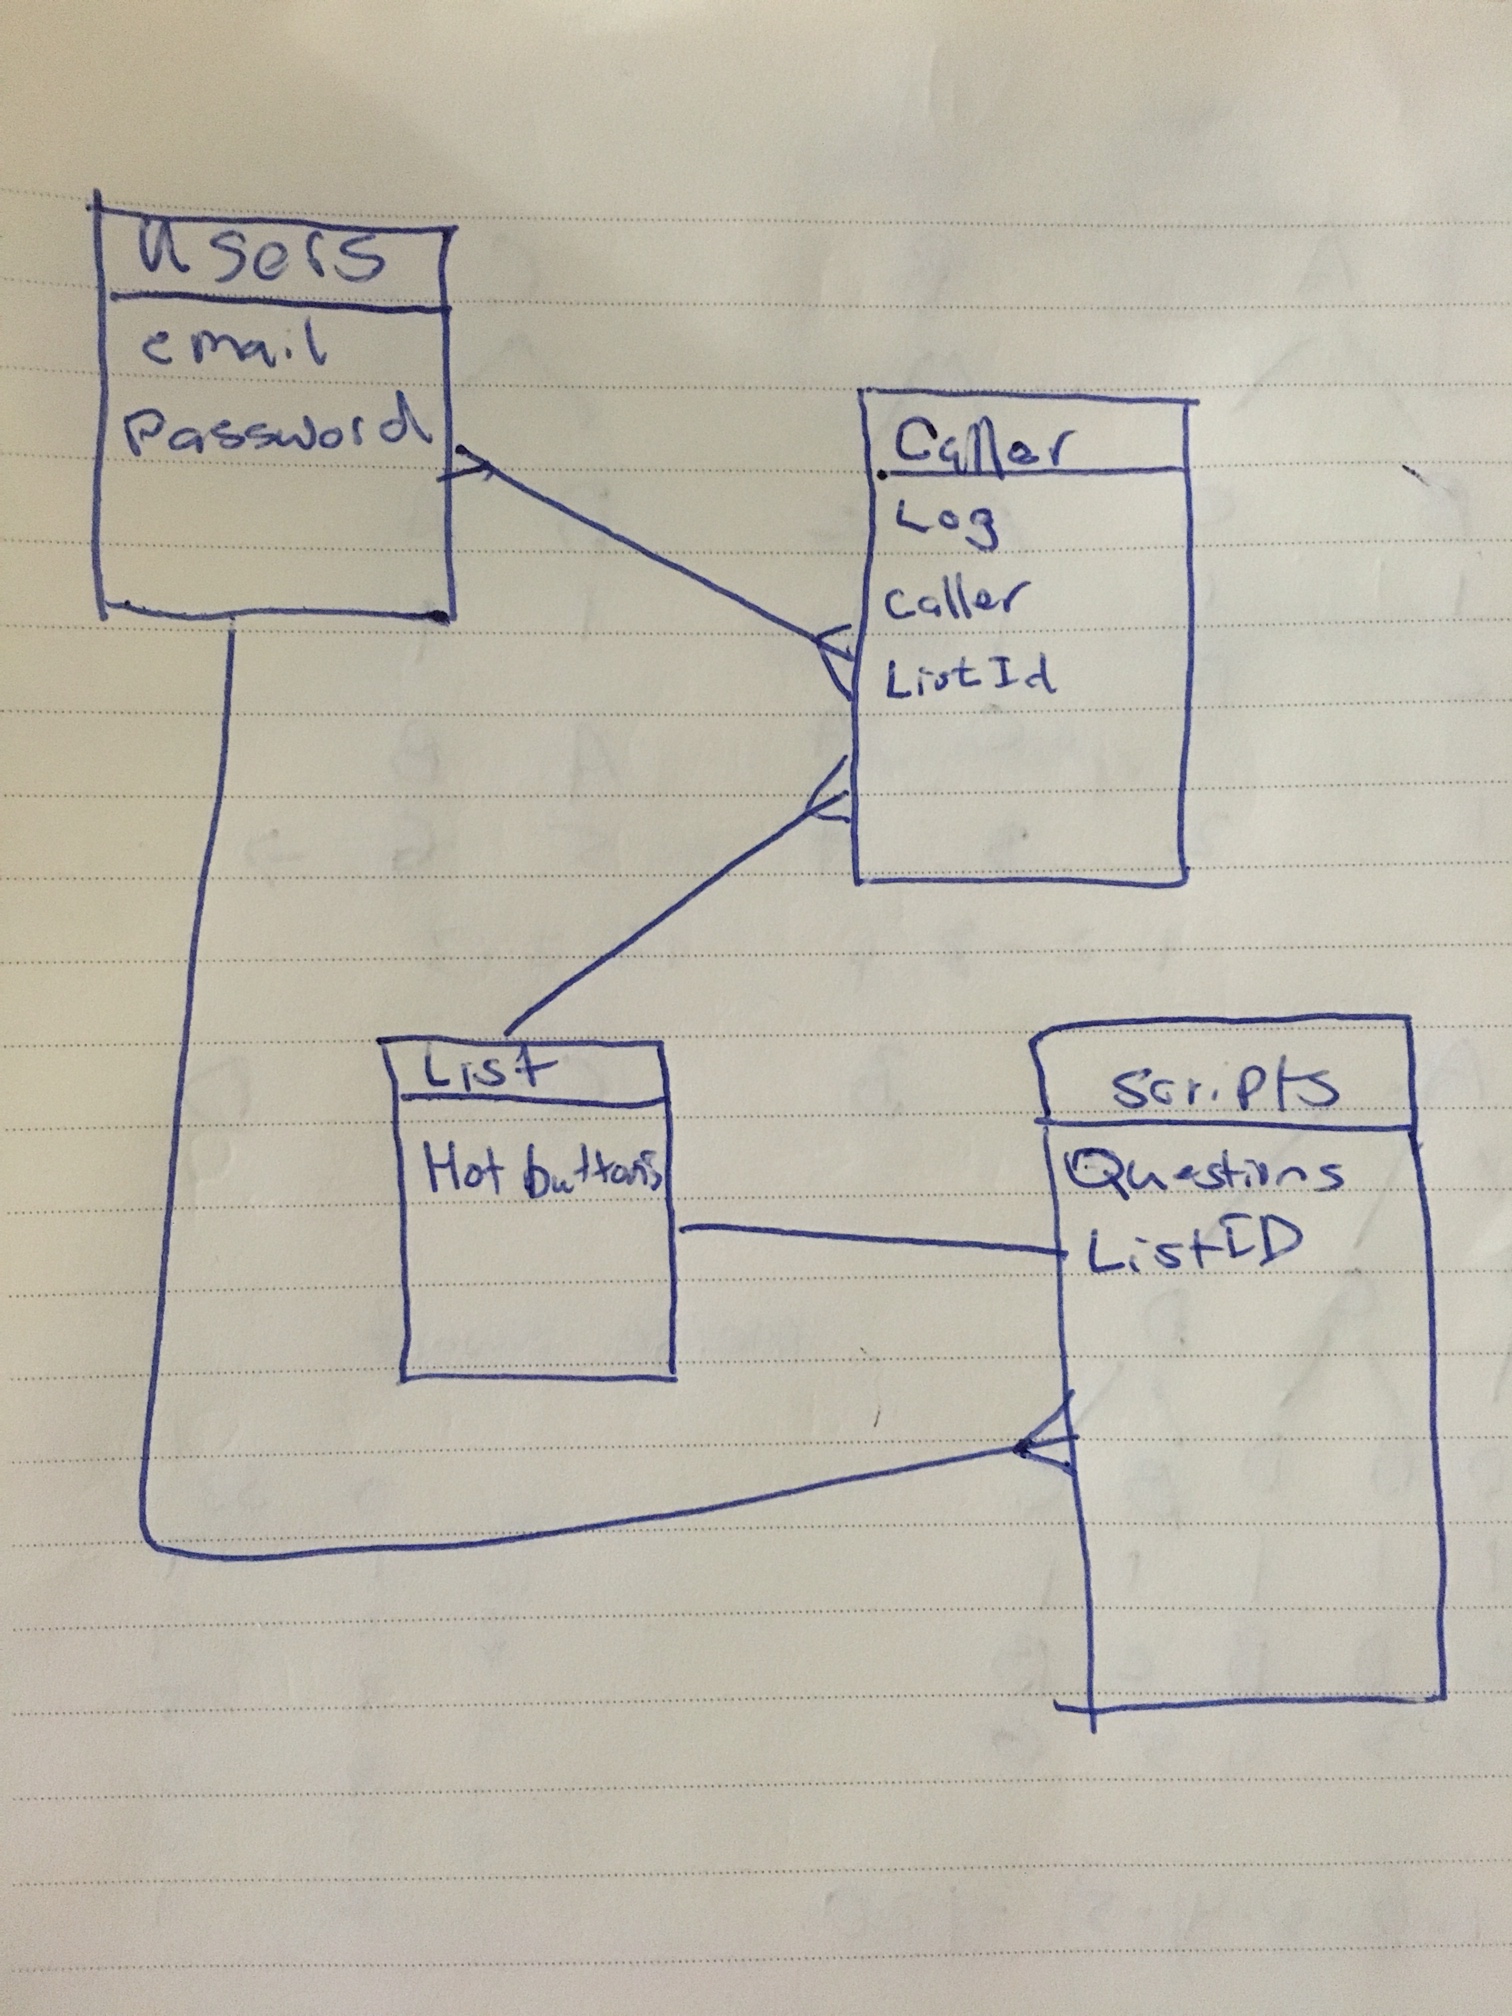 Users
email
Password
Caller
Log
Caller
ListId
List
Hot buttons
Scripts
Questions
ListID